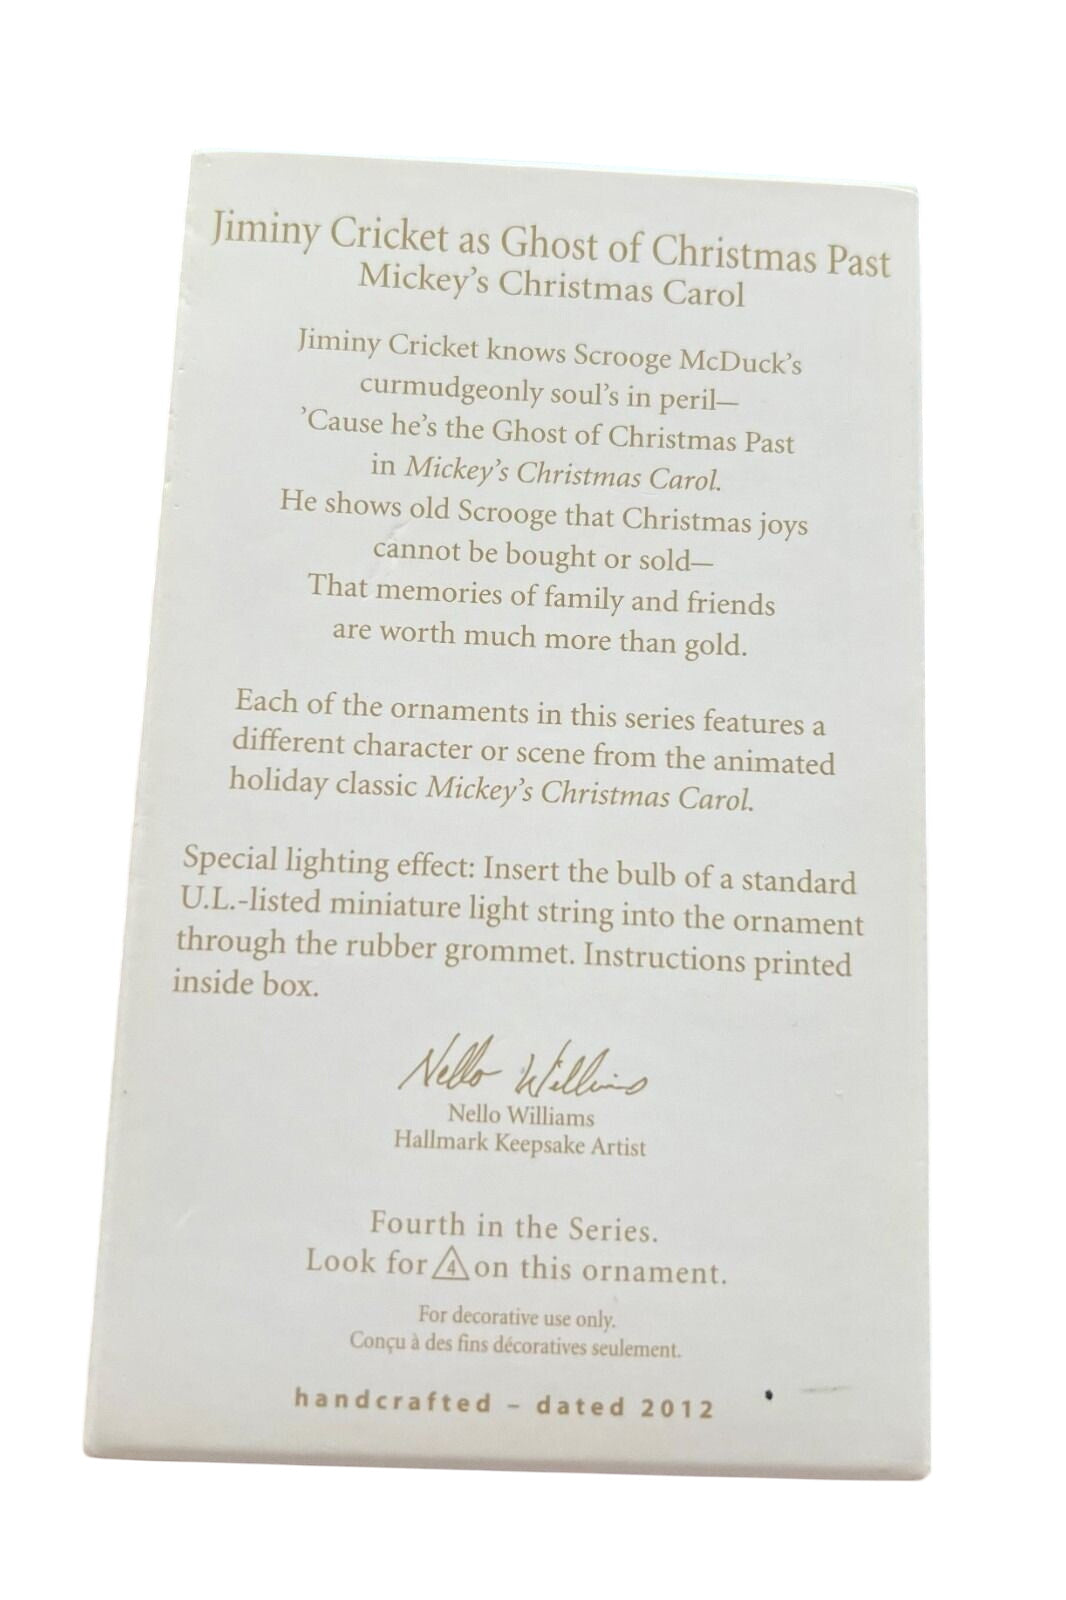 Jiminy Cricket as Ghost of Christmas Past
Mickey's Christmas Carol
Jiminy Cricket knows Scrooge McDuck's
curmudgeonly soul's in peril—
'Cause he's the Ghost of Christmas Past
in Mickey's Christmas Carol.
He shows old Scrooge that Christmas joys
cannot be bought or sold—
That memories of family and friends
are worth much more than gold.
Each of the ornaments in this series features a
different character or scene from the animated
holiday classic Mickey's Christmas Carol.
Special lighting effect: Insert the bulb of a standard
U.L.-listed miniature light string into the ornament
through the rubber grommet. Instructions printed
inside box.
Nello Williams
Nello Williams
Hallmark Keepsake Artist
Fourth in the Series.
Look for 4 on this ornament.
For decorative use only.
Conçu à des fins décoratives seulement.
handcrafted – dated 2012